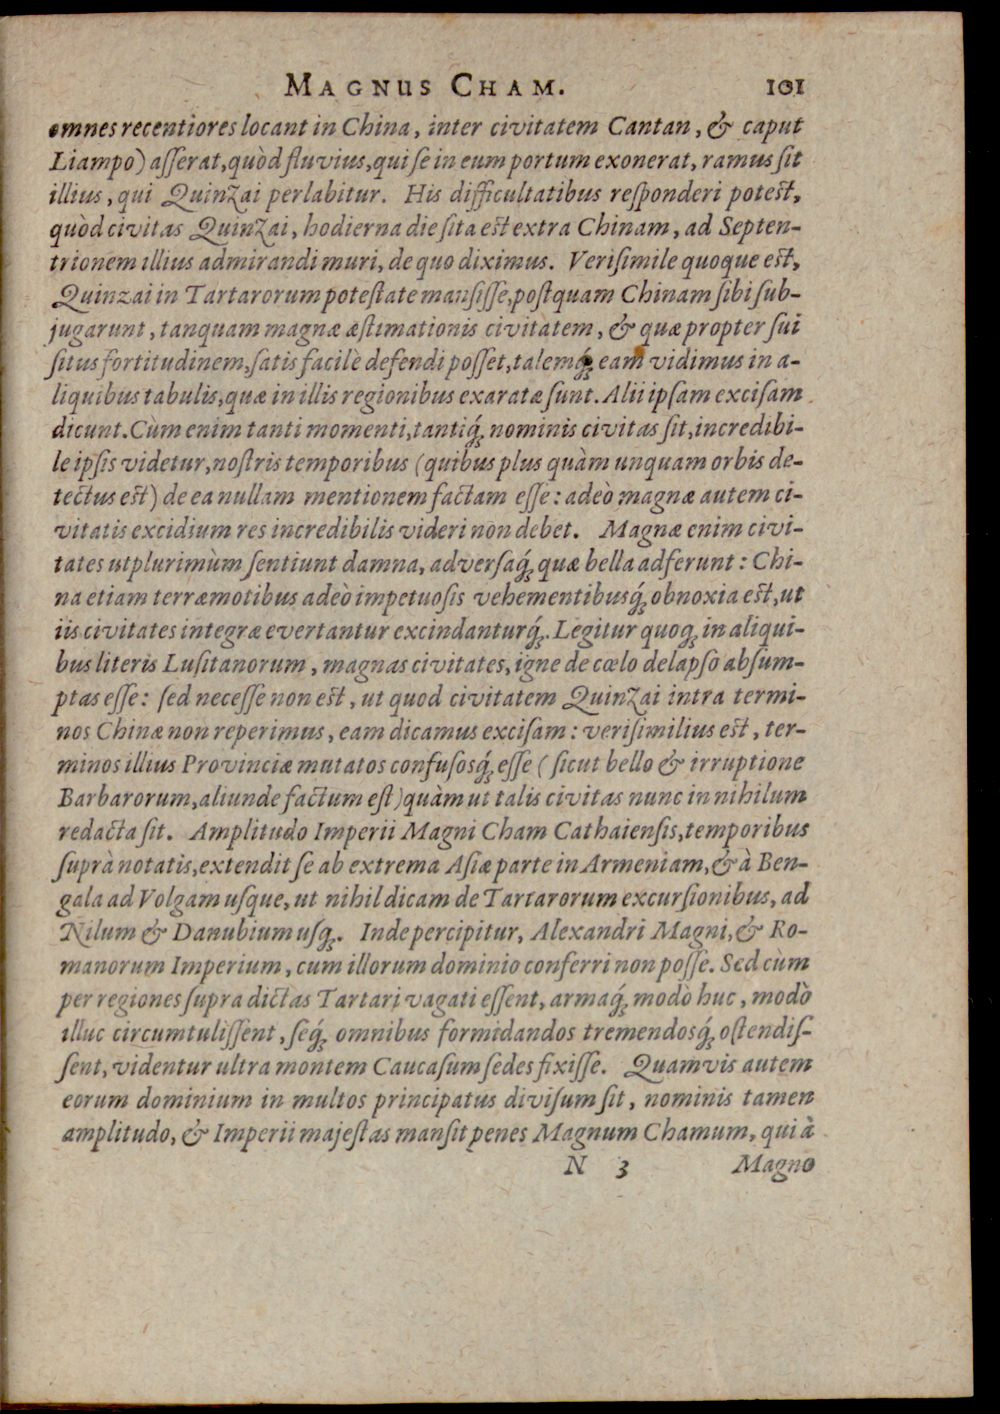 MAGNUS CHAM. 101
omnes recentiores locant in China, inter civitatem Cantan, & caput
Liampo) asserat, quòd fluvius, qui se in eum portum exonerat, ramus sit
illius, qui Quinzai perlabitur. His difficultatibus responderi potest,
quòd civitas Quinzai, hodierna die sita est extra Chinam, ad Septen-
trionem illius admirandi muri, de quo diximus. Verisimile quoque est,
Quinzai in Tartarorum potestate mansisse, postquam Chinam sibi sub-
jugarunt, tanquam magnæ æstimationis civitatem, & quæ propter sui
situs fortitudinem, satis facilè defendi posset, talemq́; eam vidimus in a-
liquibus tabulis, quæ in illis regionibus exaratæ sunt. Alii ipsam excisam
dicunt. Cùm enim tanti momenti, tantiq́; nominis civitas sit, incredibi-
le ipsis videtur, nostris temporibus (quibus plus quàm unquam orbis de-
tectus est) de ea nullam mentionem factam esse: adeò magnæ autem ci-
vitatis excidium res incredibilis videri non debet. Magnæ enim civi-
tates utplurimùm sentiunt damna, adversaq́; quæ bella adferunt: Chi-
na etiam terræmotibus adeò impetuosis vehementibusq́; obnoxia est, ut
iis civitates integræ evertantur excindanturq́;. Legitur quoq; in aliqui-
bus literis Lusitanorum, magnas civitates, igne de cœlo delapso absum-
ptas esse: sed necesse non est, ut quod civitatem Quinzai intra termi-
nos Chinæ non reperimus, eam dicamus excisam: verisimilius est, ter-
minos illius Provinciæ mutatos confusosq́; esse (sicut bello & irruptione
Barbarorum, aliunde factum est) quàm ut talis civitas nunc in nihilum
redacta sit. Amplitudo Imperii Magni Cham Cathaiensis, temporibus
suprà notatis, extendit se ab extrema Asiæ parte in Armeniam, & à Ben-
gala ad Volgam usque, ut nihil dicam de Tartarorum excursionibus, ad
Nilum & Danubium usq;. Inde percipitur, Alexandri Magni, & Ro-
manorum Imperium, cum illorum dominio conferri non posse. Sed cùm
per regiones supra dictas Tartari vagati essent, armaq́; modò huc, modò
illuc circumtulissent, seq́; omnibus formidandos tremendosq́; ostendis-
sent, videntur ultra montem Caucasum sedes fixisse. Quamvis autem
eorum dominium in multos principatus divisum sit, nominis tamen
amplitudo, & Imperii majestas mansit penes Magnum Chamum, qui à
N 3 Magno